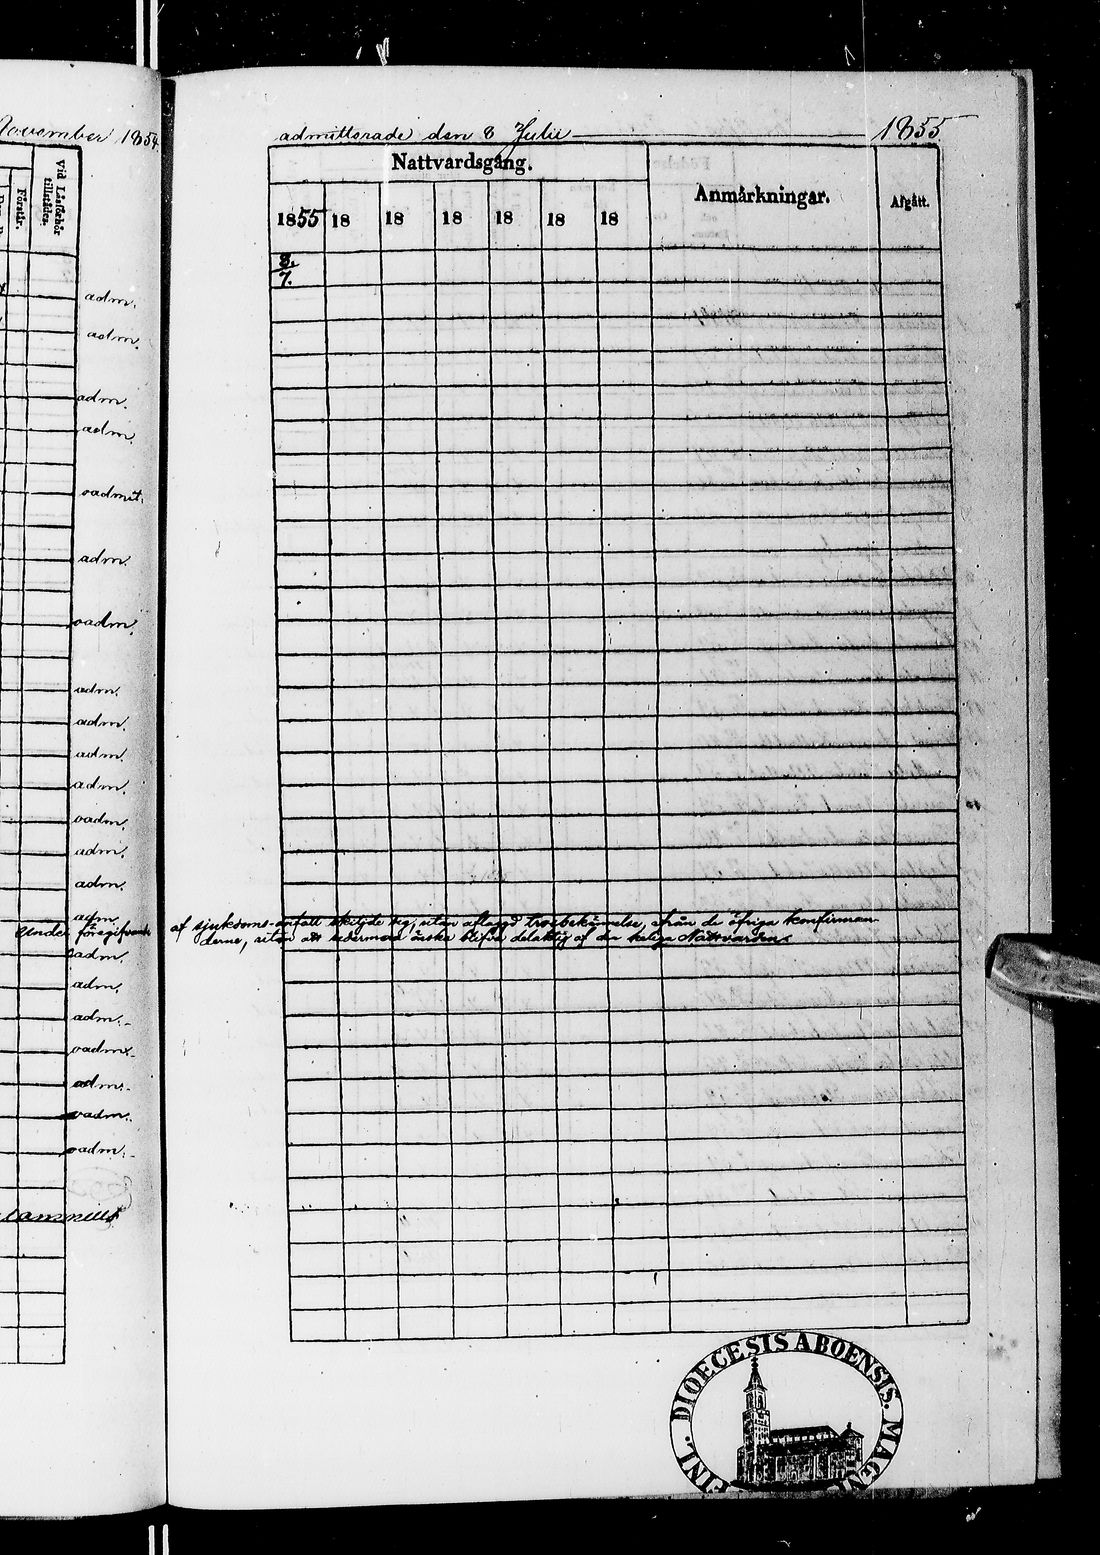 November 1854.
Vid Läsförhör tillstädes.
Förstår.
adm.
adm.
adm.
adm.
oadmit.
adm.
oadm.
adm.
adm.
adm.
adm.
oadm.
adm.
adm.
adm.
oadm.
adm.
adm.
oadm.
adm.
oadm.
oadm.
admitterade den 8 Julii 1855.
Nattvardsgång. Anmärkningar. Afgått.
1855 18 18 18 18 18 18
8.
7.
Under föregifvande af sjukdoms-anfall skiljde sig, utan aflagd trosbekännelse, ifrån de öfriga konfirman-
derne, utan att sedermera önska blifva delaktig af den heliga Nattvarden.
DIOECESIS ABOENSIS. MAGN
FINL.